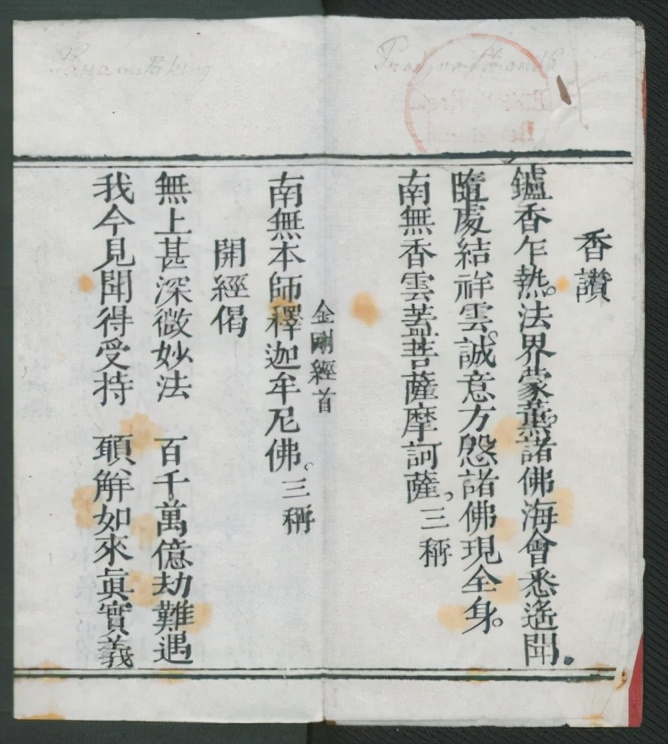 香讚
鑪香乍熱。法界蒙薰。諸佛海會悉遙聞。
隨處結祥雲。誠意方慇諸佛現全身。
南無香雲蓋菩薩摩訶薩。三稱
金剛經首
南無本師釋迦牟尼佛。三稱
開經偈
無上甚深微妙法 百千萬億劫難遇
我今見聞得受持 願解如來眞實義